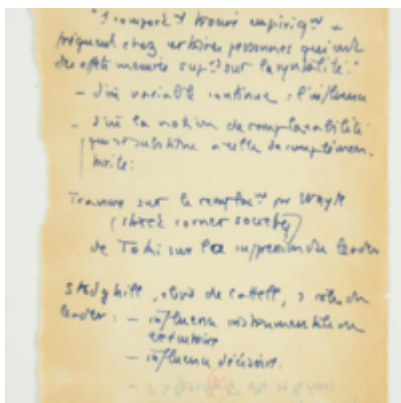 "1 comport^t trouvé empiriq^t +
fréquent chez certaines personnes qui ont
des effets mesurés sup^rs sur la syntalité."
- d'où variable continue : l'influence
- d'où la notion de remplaçabilité
qui se substitue à celle de complémen-
tarité :
Travaux sur le remplac^nt par Whyte
(street corner society)
de Toki sur la supression du leader
Stodghill, élève de Cattell, 2 rôles du
leader : - influence instrumentation
exécutoire
- influence décisoire.